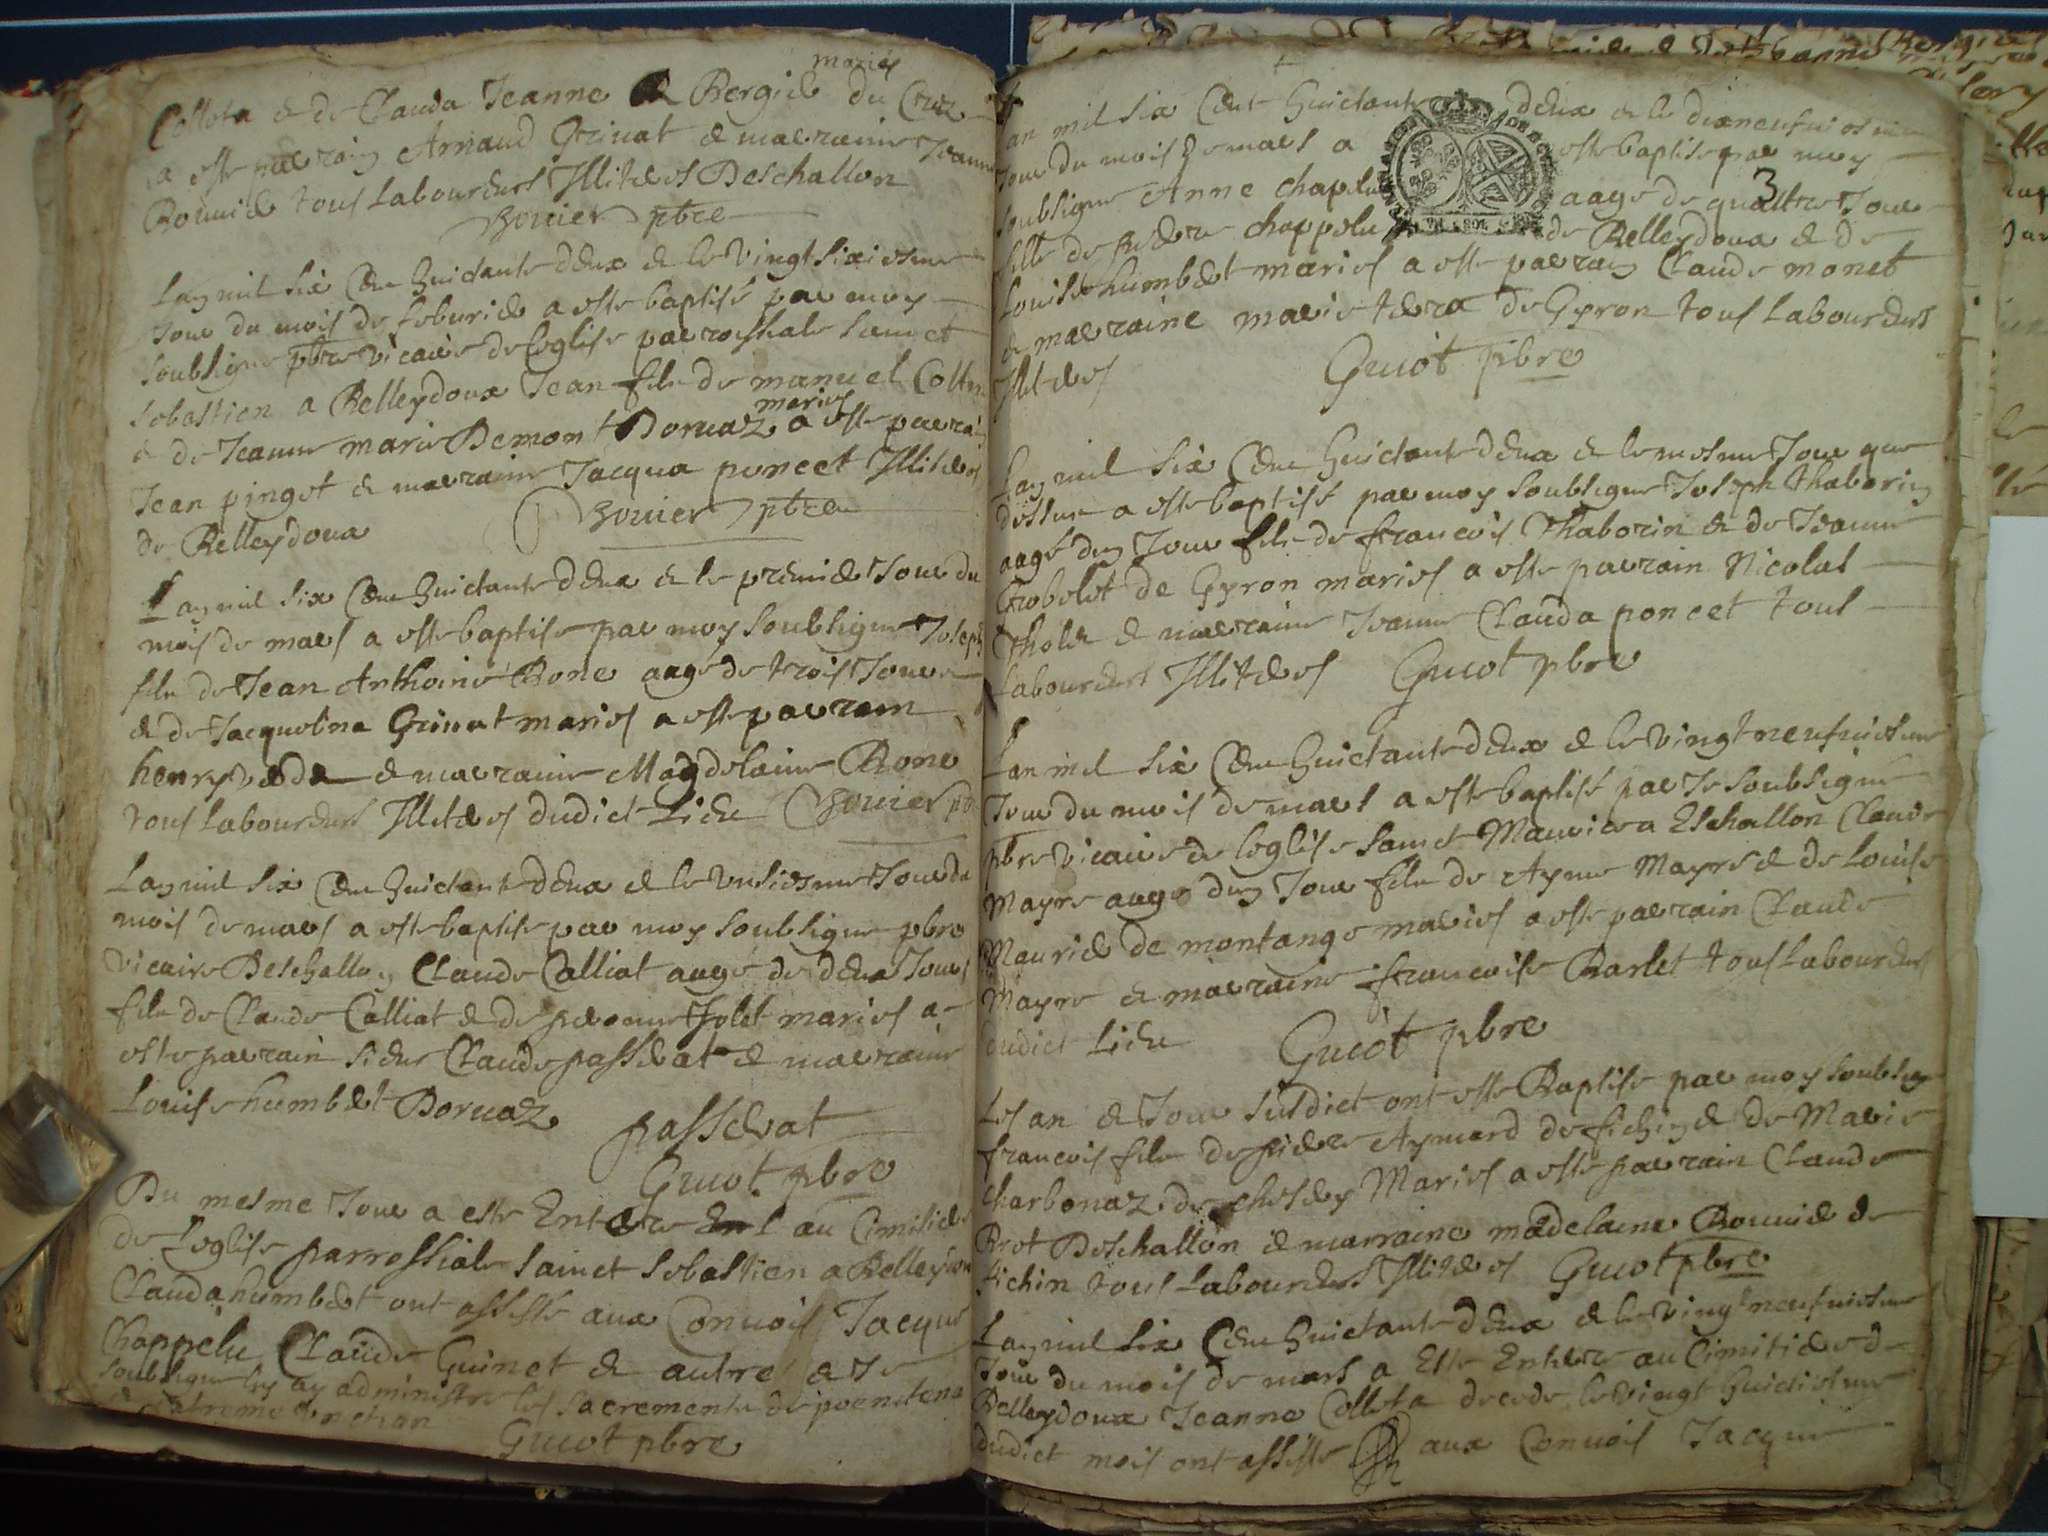 mariés
Collota & de Clauda Jeanne Bergier du Cret
a este parrain Arnaud Grinat & marraine Jeanne
Bouvier tous Laboureurs Illiterés Deschallon
Bovier pbre
Lan mil six Cent huictante deux & le vingt sixiesme
Jour du mois de feburier a este baptisé par moy
soubsigné pbre vicaire de leglise parrossiale sainct
Sebastien a Belleydoux Jean fils de manuel
mariés
& de Jeanne marie Demont Bornaz a este parrain
Jean pinget & marraine Jacqua poncet Illiterés
de Belleydoux Bovier pbre
Lan mil six Cent huictante deux & le premier Jour du
mois de mars a este baptise par moy soubsigne Joseph
fils de Jean Anthoine Rone aagé de trois Jours
& de Jacqueline Grinat mariés a este parrain
henry & marraine Magdelaine Rone
tous Laboureurs Illiterés dudict Lieu Bovier
Lan mil six Cent huictante deux & le unsiesme Jour du
mois de mars a este baptise par moy soubsigne pbre
vicaire Deschallon Claude Calliat aagé de deux Jours
fils de Claude Calliat & de mariés a
este parrain sieur Claude passerat & marraine
Louise humbert Bornaz
passerat
Guiot pbre
Du mesme Jour a este Enterre au Cimitier
de Leglise parrossiale sainct Sebastien a Belleydoux
Clauda humbert ont assisté aux Convois Jacque
Chappelu Claude Guinet & autre & Je
soubsigne luy ay administre les sacrements de poenitence
& extreme onction
Guiot pbre
Lan mil six Cent huictante deux & le dixneufviesme
Jour du mois de mars a este baptise par moy
3
soubsigne Anne chapelu aagé de quattre Jour
fille de pierre chappelu de Belleydoux & de
Louise humbert mariés a este parrain Claude monet
& marraine marie de Gyron tous Laboureurs
Illiterés Guiot pbre
Lan mil six Cent huictante deux & le mesme Jour que
dessus a este baptisé par moy soubsigne Joseph thaborin
aagé dun Jour fils de francois Thaborin & de Jeanne
Grobelet de Gyron mariés a este parrain Nicolas
& marraine Jeanne Clauda poncet tous
Laboureurs Illiterés Guiot pbre
Lan mil six Cent huictante deux & le vingt neufviesme
Jour du mois de mars a este baptisé par Je soubsigné
pbre vicaire de leglise sainct Maurice a Eschallon Claude
Mayre aagé dun Jour fils de Ayme Mayre & de Louise
Maurier de montange mariés a este parrain Claude
Mayre & marraine francoise Barlet tous Laboureurs
dudict Lieu Guiot pbre
Les an & Jour susdict ont este Baptise par moy soubsigne
francois fils de pierre Aymard de fichin & de Marie
Charbonaz de Mariés a este parrain Claude
Brot Deschallon & marraine madelaine Bouvier de
fichin tous Laboureurs Illiterés Guiot pbre
Lan mil six Cent huictante deux & le vingt neufviesme
Jour du mois de mars a Este Enterre au Cimitiere de
Belleydoux Jeanne Collota decede le vingt huictiesme
dudict mois ont assiste aux Convois Jacque